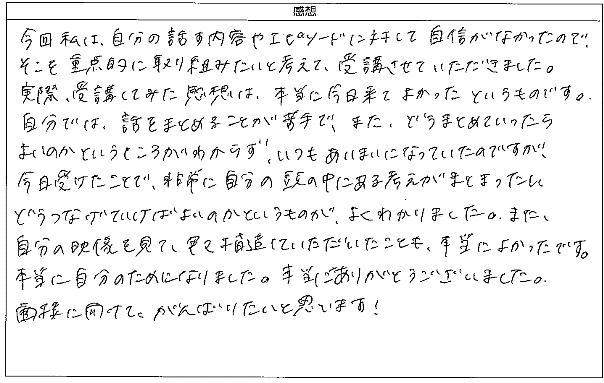 感想
今回私は、自分の話す内容やエピソードに対して自信がなかったので、
そこを重点的に取り組みたいと考えて、受講させていただきました。
実際、受講してみた感想は、本当に今日来てよかったというものです。
自分では、話をまとめることが苦手で、また、どうまとめていったら
よいのかというところがわからず、いつもあいまいになっていたのですが、
今日受けたことで、非常に自分の頭の中にある考えがまとまったし、
どうつなげていけばよいのかというものが、よくわかりました。また、
自分の映像を見て、見て指摘していただいたことも、本当によかったです。
本当に自分のためになりました。本当にありがとうございました。
面接に向けて、がんばりたいと思います！